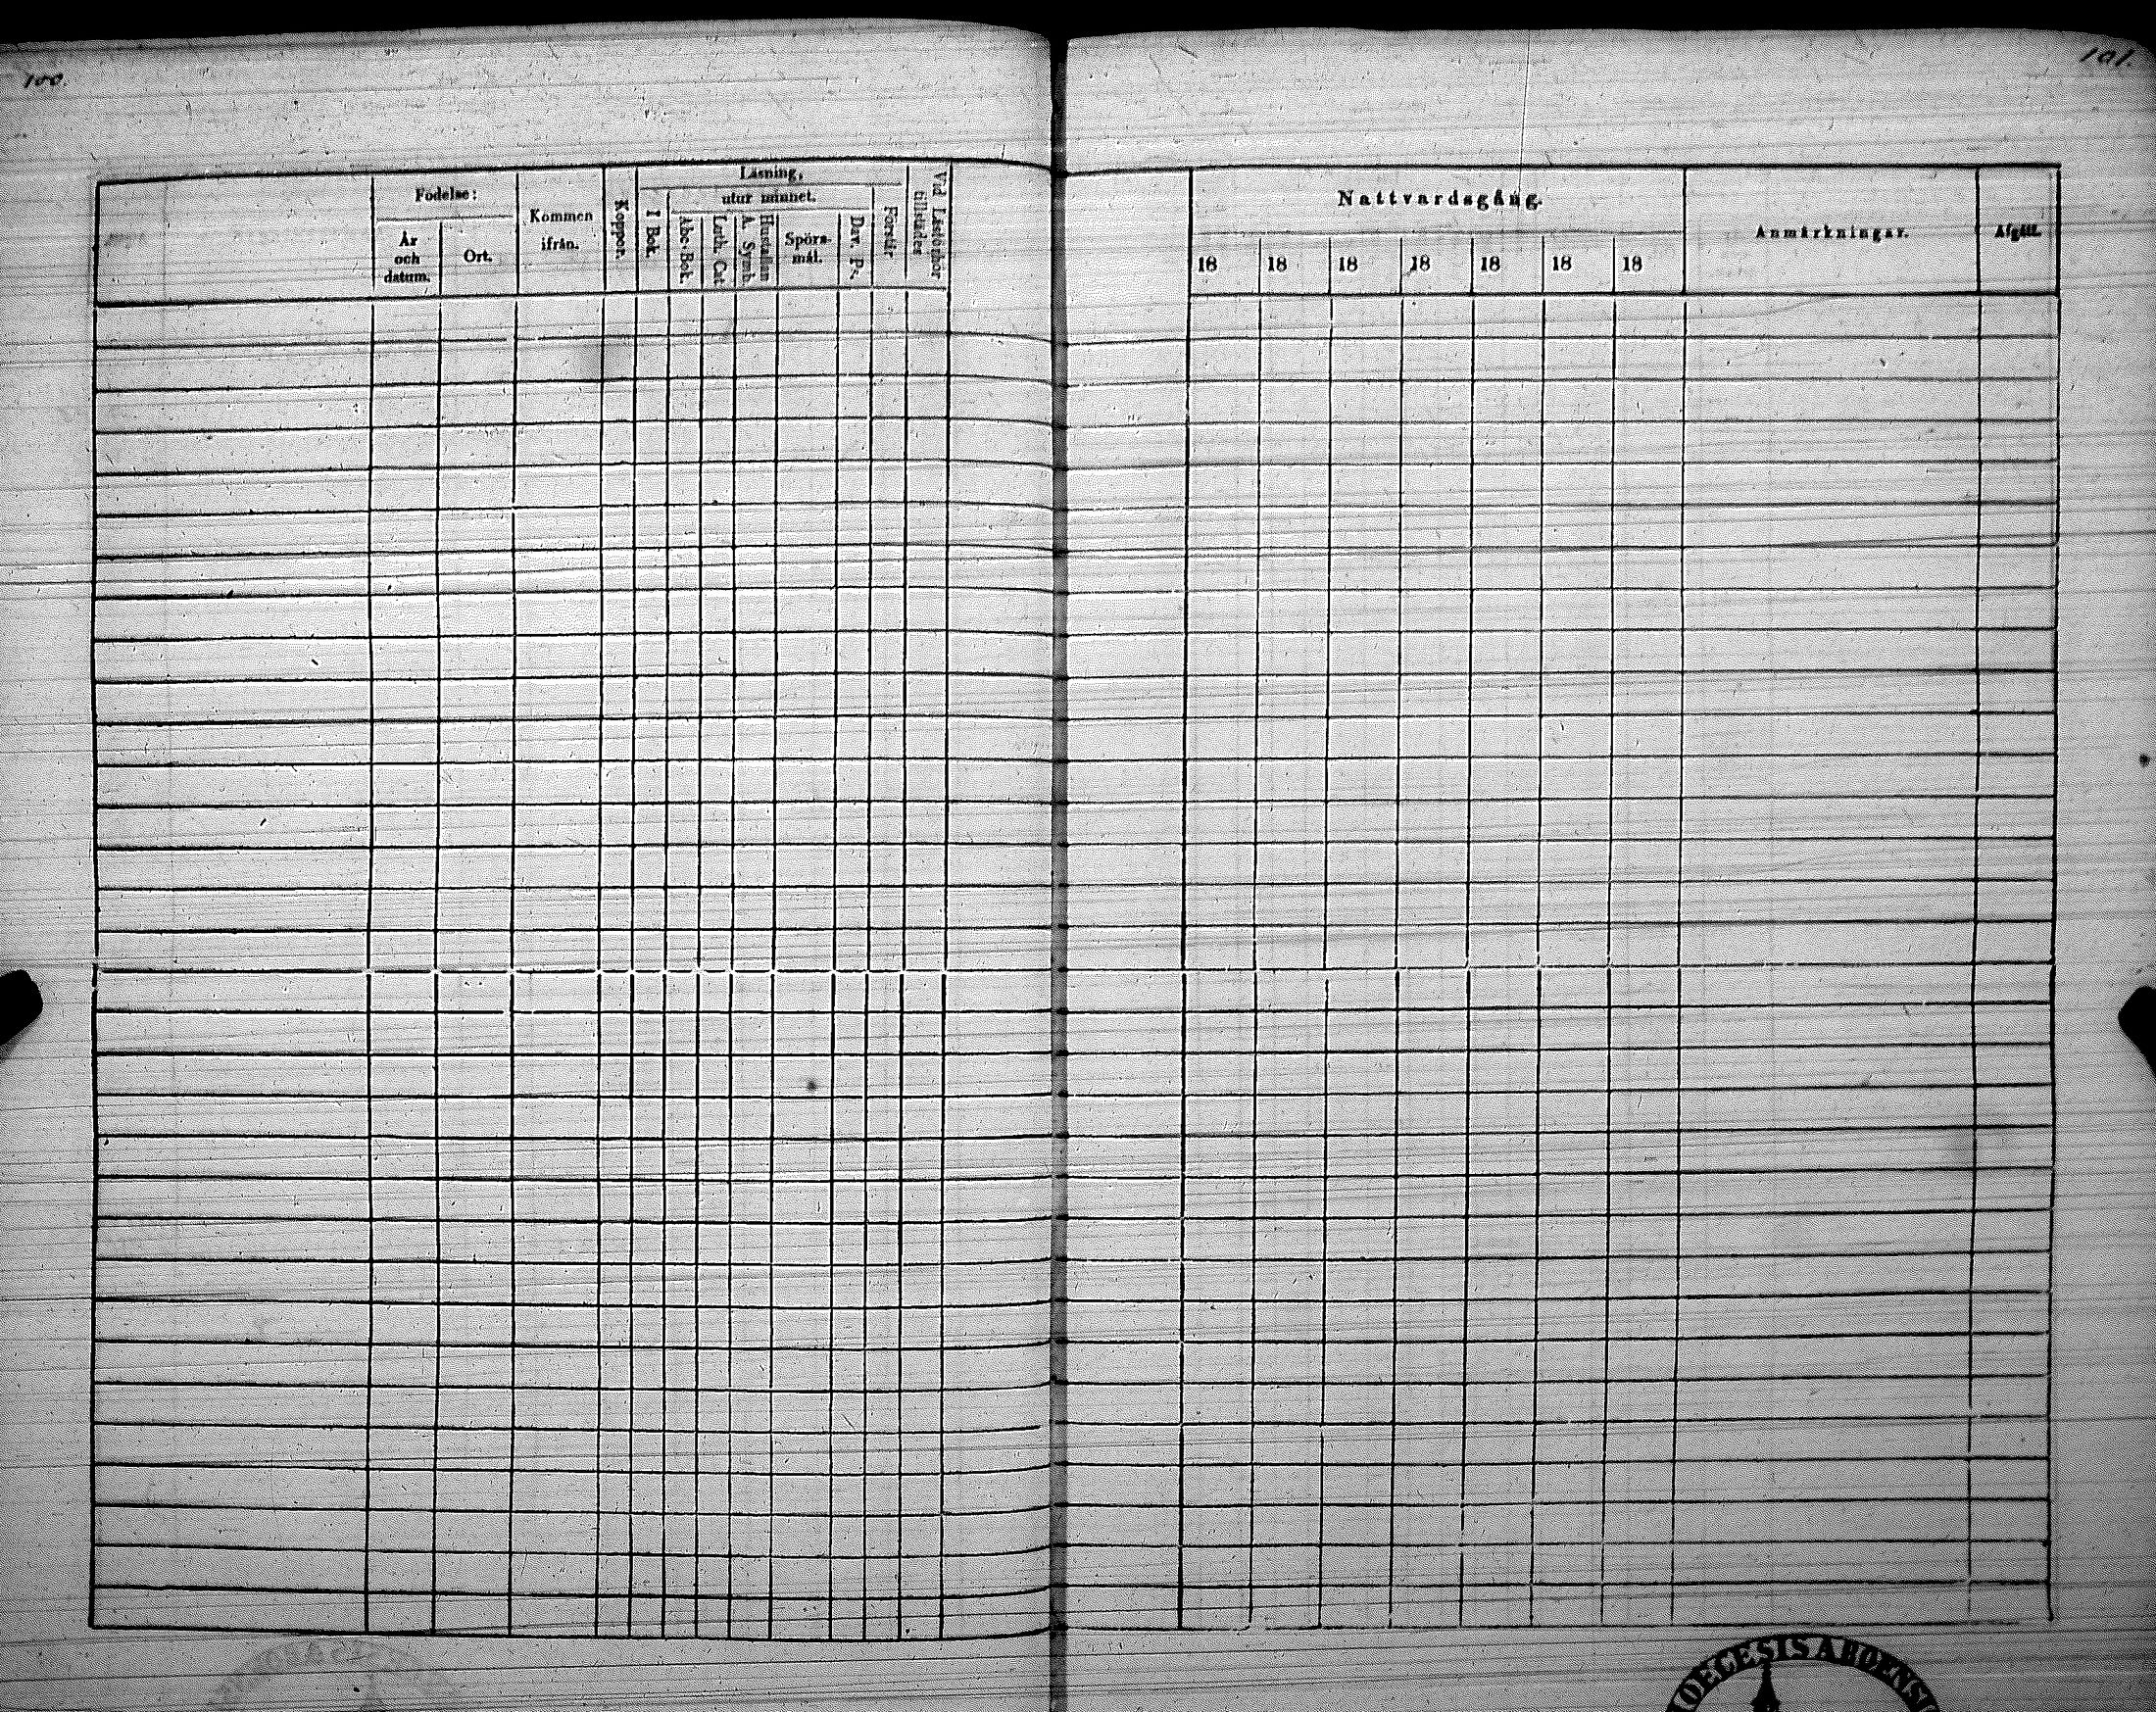 100.
101.
Födelse:
År
och
datum.
Ort.
Kommen
ifrån.
Koppor.
Läsning,
I Bok.
utur minnet.
Abc-Bok.
Luth. Cat.
Hustaflan
A. Symb.
Spörs-
mål.
Dav. Ps.
Förstår
Vid Läsförhör
tillstädes
Nattvardsgång.
18 18 18 18 18 18 18
Anmärkningar.
Afgått.
DIOECESIS ABOENSIS